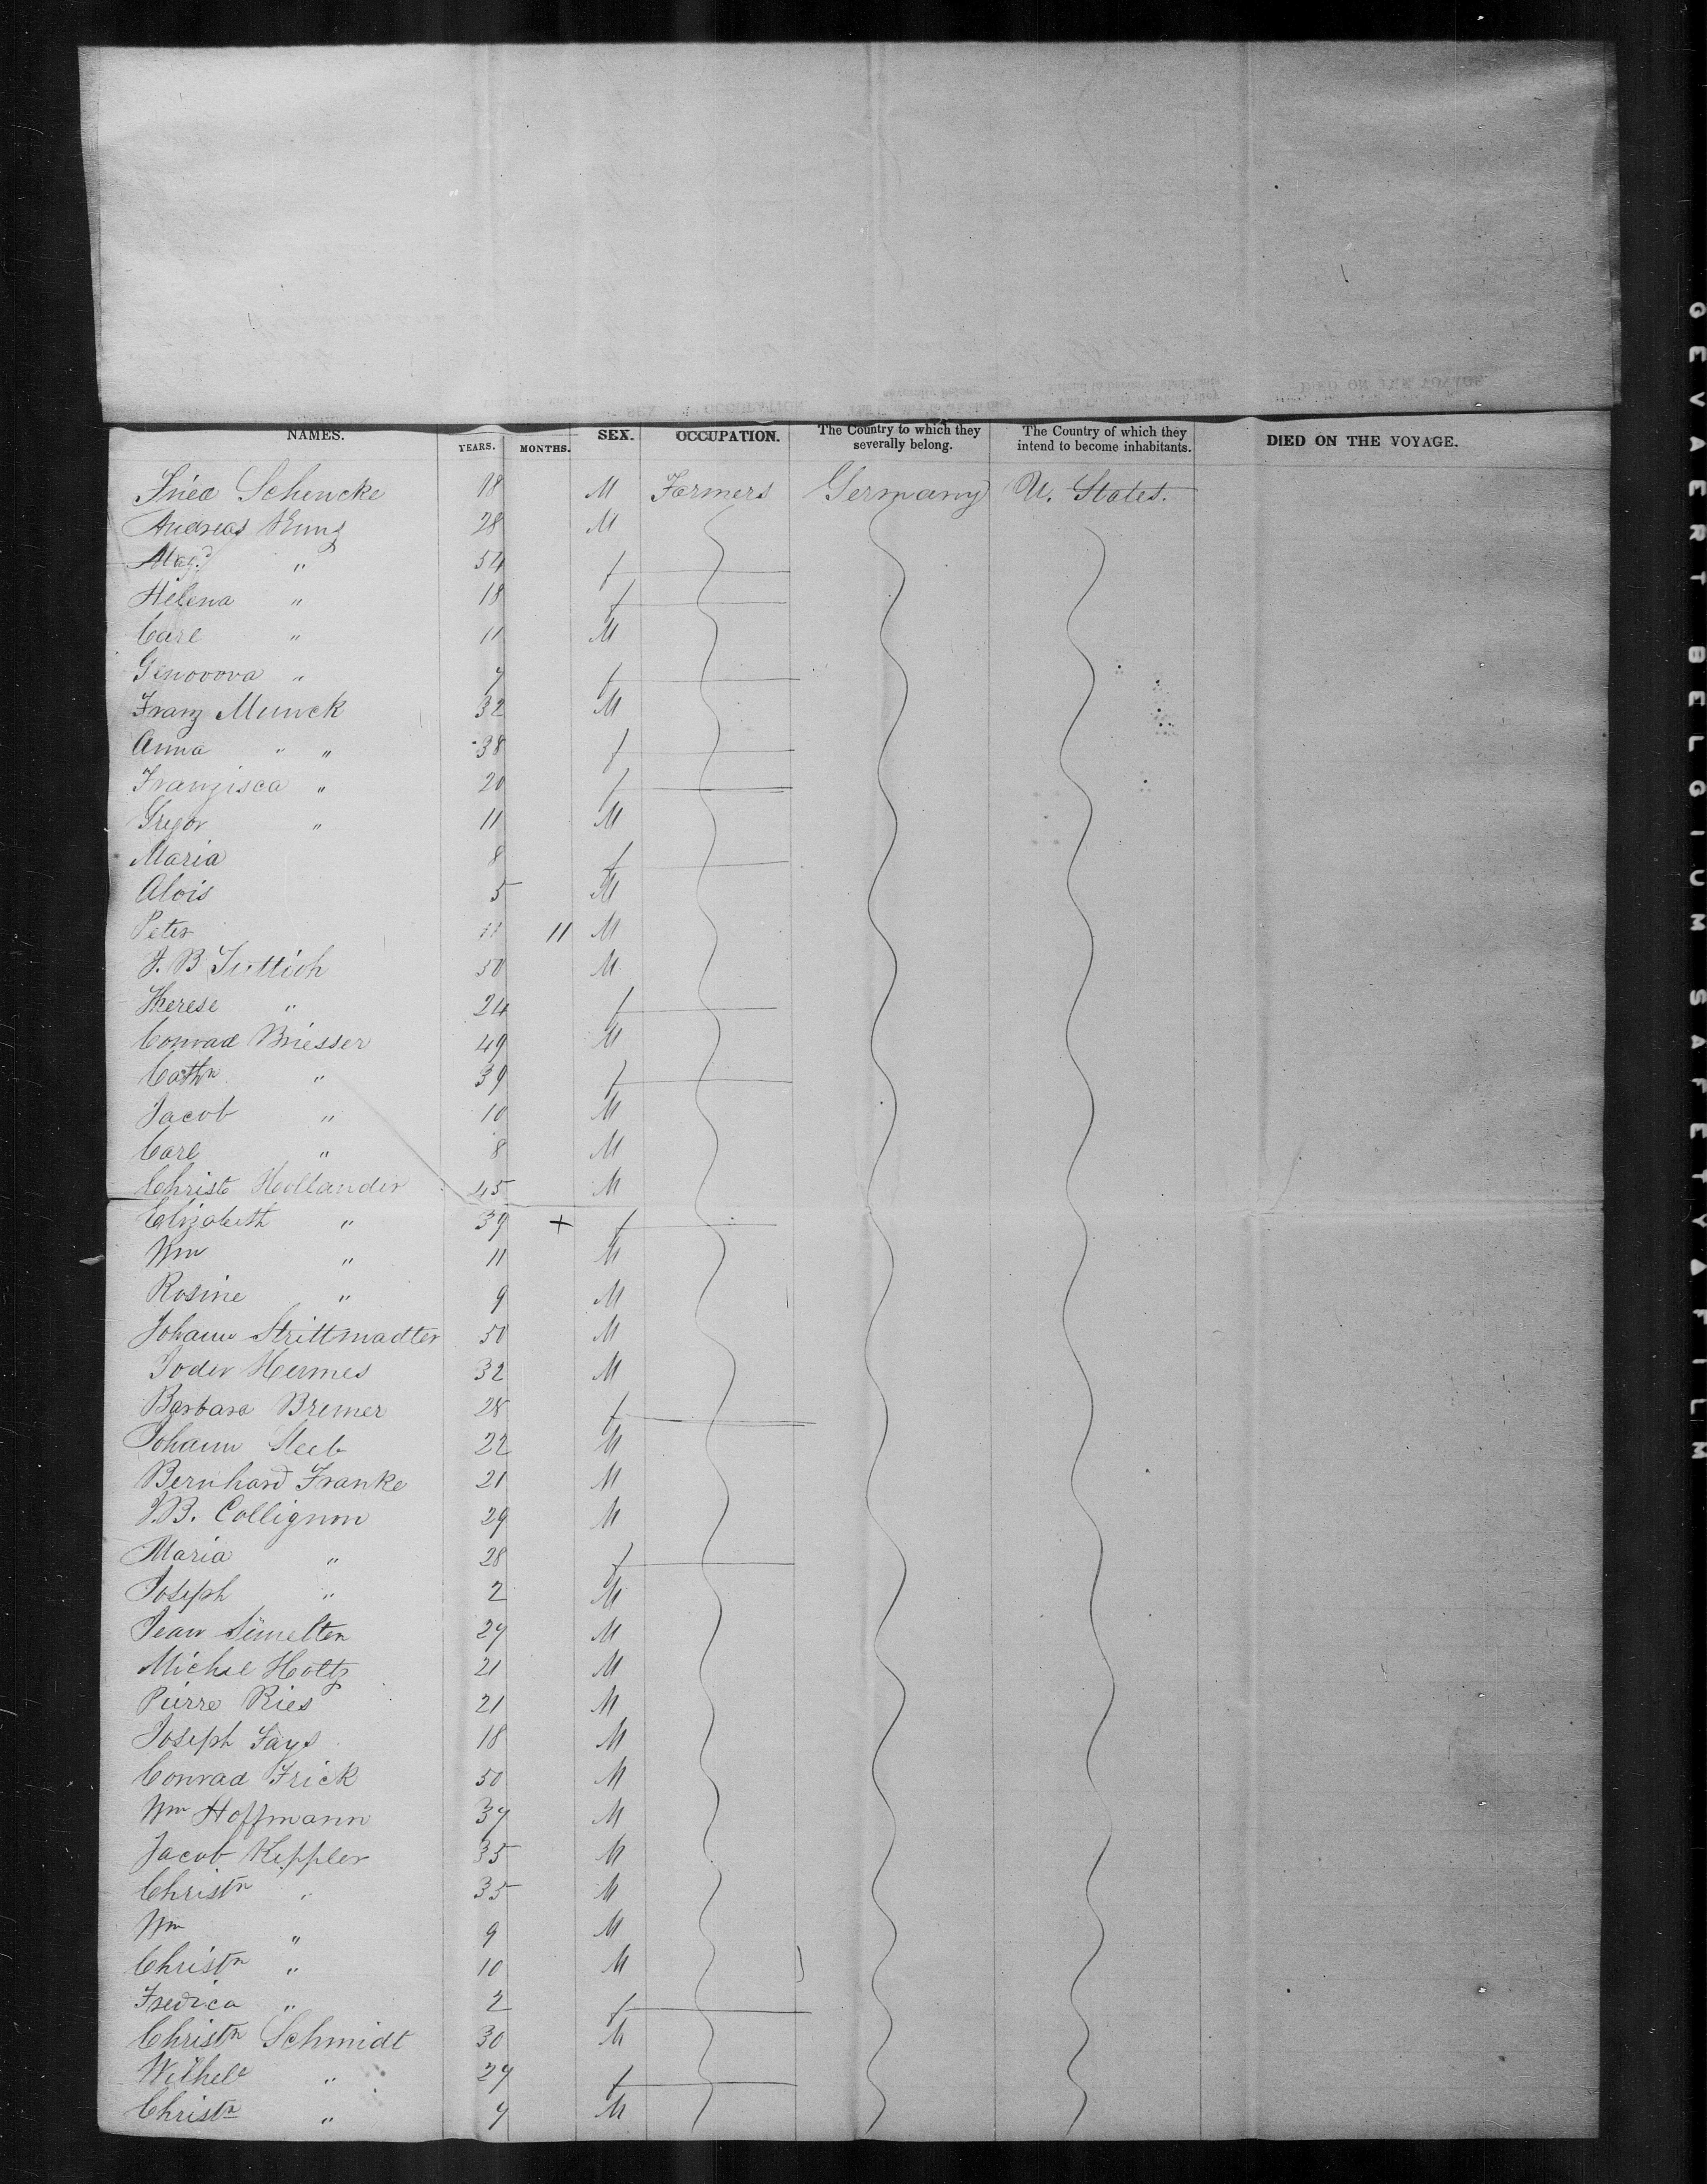 NAMES. YEARS. MONTHS. SEX. OCCUPATION. The Country to which they severally belong. The Country of which they intend to become inhabitants. DIED ON THE VOYAGE.
Schencke 18 M Farmers Germany U. States.
Andreas Kunz 28 M
Magd " 54 f
Helena " 18 f
Carl " 11 M
Genovova " 7 f
Franz Munck 32 M
Anna " " 38 f
Franzisca " 20 f
Gregor " 11 M
Maria 8 f
Alois 5 M
Peter " 11 M
J. B 50 M
Therese " 24 f
Conrad Briesser 49 M
Cathn " 39 f
Jacob " 10 M
Carl " 8 M
Christ Hollander 45 M
Elizabeth " 39 + f
Wm " 11 M
Rosine " 9 M
Johann Strittmadter 50 M
Hermes 32 M
Barbara Bremer 28 f
Johann Steeb 22 M
Bernhard Franke 21 M
J.B. Collignon 29 M
Maria " 28 f
Joseph " 2 M
Jean 27 M
Michel Holtz 21 M
Pierre Ries 21 M
Joseph Fays 18 M
Conrad Frick 50 M
Wm Hoffmann 37 M
Jacob Keppler 35 M
Christn " 35 M
Wm " 9 M
Christn " 10 M
Fredica " 2 f
Christn Schmidt 30 M
Wilhele " 27 f
Christn " 7 M
GEVAERT BELGIUM SAFETY FILM